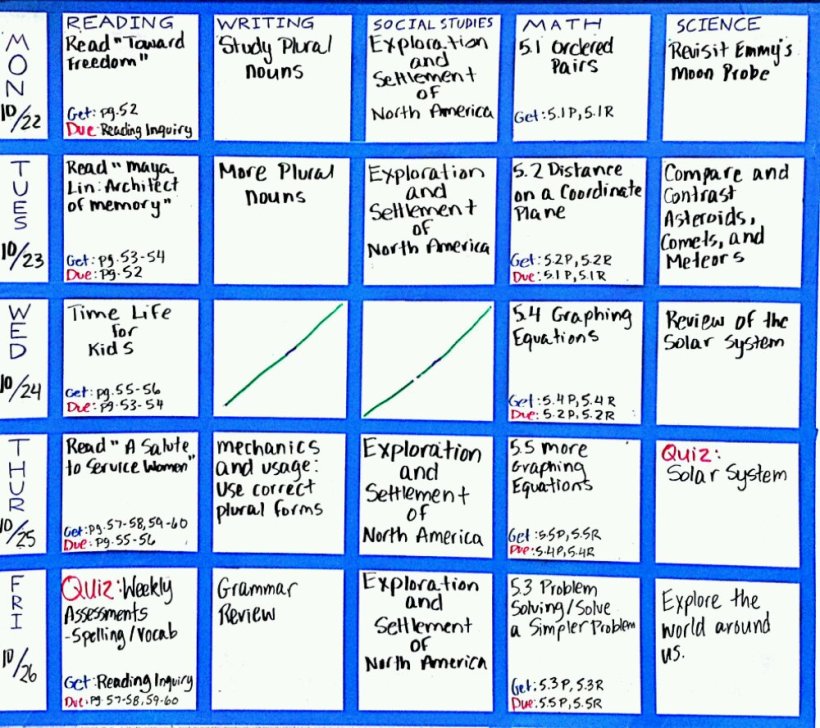 READING
WRITING
SOCIAL STUDIES
MATH
SCIENCE
MON
10/22
Read "Toward
Freedom"
Get: pg.52
Due: Reading Inquiry
Study Plural
nouns
Exploration
and
Settlement
of
North America
5.1 Ordered
Pairs
Get: 5.1P, 5.1R
Revisit Emmy's
Moon Probe
TUES
10/23
Read "Maya
Lin: Architect
of memory"
Get: pg. 53-54
Due: pg. 52
More Plural
nouns
Exploration
and
Settlement
of
North America
5.2 Distance
on a Coordinate
Plane
Get: 5.2P, 5.2R
Due: 5.1P, 5.1R
Compare and
Contrast
Asteroids,
Comets, and
Meteors
WED
10/24
Time Life
for
Kids
Get: pg. 55-56
Due: pg. 53-54
5.4 Graphing
Equations
Get: 5.4P, 5.4R
Due: 5.2P, 5.2R
Review of the
Solar System
THUR
10/25
Read "A Salute
to Service Women"
Get: pg. 57-58, 59-60
Due: pg. 55-56
mechanics
and usage:
use correct
plural forms
Exploration
and
Settlement
of
North America
5.5 more
Graphing
Equations
Get: 5.5P, 5.5R
Due: 5.4P, 5.4R
Quiz:
Solar System
FRI
10/26
Quiz: Weekly
Assessments
-Spelling/Vocab
Get: Reading Inquiry
Due: Pg 57-58, 59-60
Grammar
Review
Exploration
and
Settlement
of
North America
5.3 Problem
Solving/Solve
a Simpler Problem
Get: 5.3P, 5.3R
Due: 5.5P, 5.5R
Explore the
world around
us.